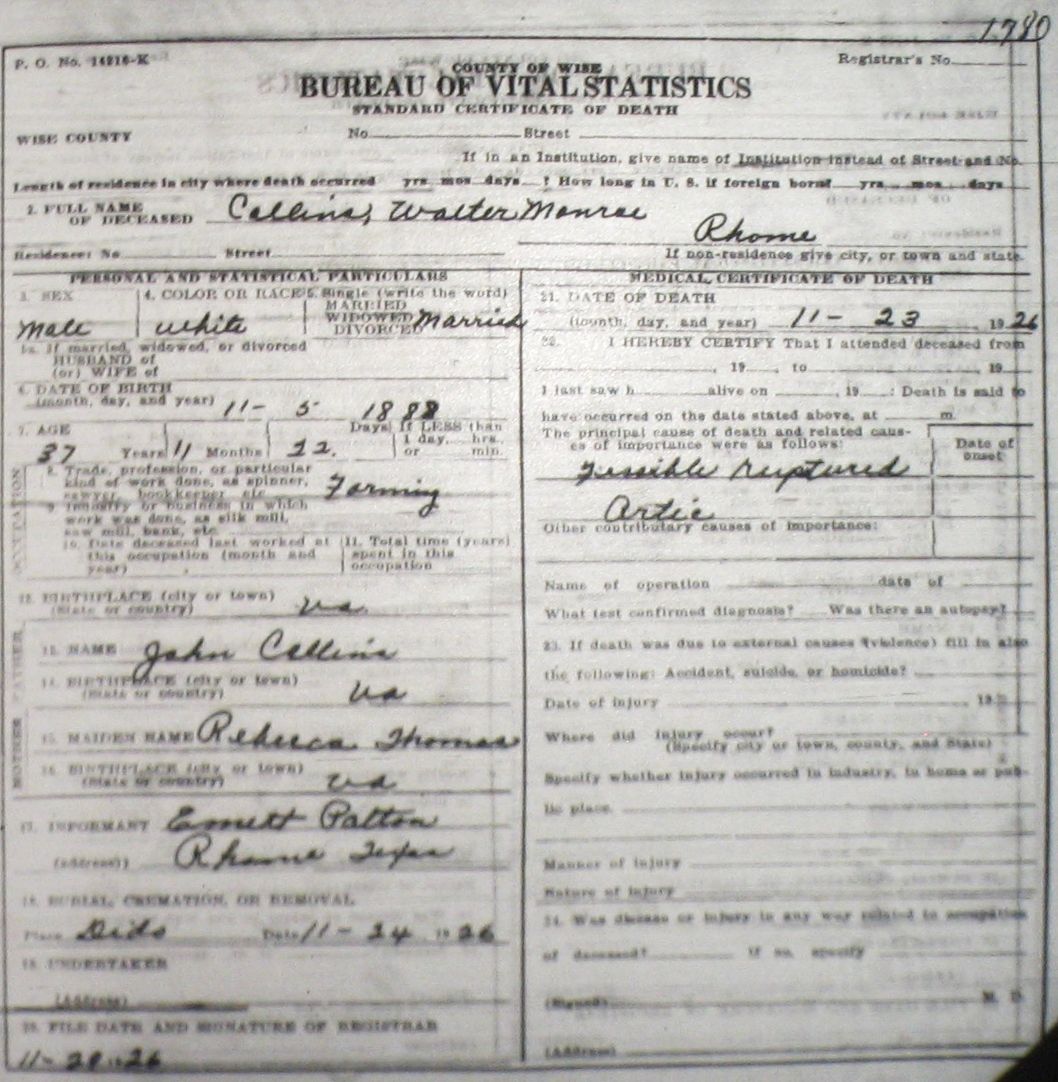 1780
P. O. No. 14216-K
Registrar's No.
COUNTY OF WISE
BUREAU OF VITAL STATISTICS
STANDARD CERTIFICATE OF DEATH
WISE COUNTY No Street
If in an Institution, give name of Institution instead of Street and No.
Length of residence in city where death occurred yrs mos days ? How long in U. S. if foreign born? yrs mos days
2. FULL NAME OF DECEASED Collins, Walter Monroe
Rhome
Residence: No Street
If non-residence give city, or town and state.
PERSONAL AND STATISTICAL PARTICULARS
3. SEX Male
4. COLOR OR RACE white
5. Single (write the word)
MARRIED
WIDOWED
DIVORCED Married
5a. If married, widowed, or divorced
HUSBAND of
(or) WIFE of
6. DATE OF BIRTH
(month, day, and year) 11- 5 1888
7. AGE
37 Years 11 Months 22 Days If LESS than
1 day, hrs.
or min.
OCCUPATION
8. Trade, profession, or particular
kind of work done, as spinner,
sawyer, bookkeeper, etc. Farming
9. Industry or business in which
work was done, as silk mill,
saw mill, bank, etc.
10. Date deceased last worked at
this occupation (month and
year)
11. Total time (years)
spent in this
occupation
12. BIRTHPLACE (city or town)
(State or country) Va
FATHER
13. NAME John Collins
14. BIRTHPLACE (city or town)
(State or country) Va
MOTHER
15. MAIDEN NAME Rebecca Thomas
16. BIRTHPLACE (city or town)
(State or country) Va
17. INFORMANT Emett Patton
(address) Rhome Texas
18. BURIAL, CREMATION, OR REMOVAL
Place Dido Date 11-24 1926
19. UNDERTAKER
(Address)
20. FILE DATE AND SIGNATURE OF REGISTRAR
11-29 1926
MEDICAL CERTIFICATE OF DEATH
21. DATE OF DEATH
(month, day, and year) 11- 23, 1926
22. I HEREBY CERTIFY That I attended deceased from
, 19 , to , 19
I last saw h alive on , 19 : Death is said to
have occurred on the date stated above, at m.
The principal cause of death and related caus-
es of importance were as follows:
Date of
onset
ruptured
Artic
Other contributary causes of importance:
Name of operation date of
What test confirmed diagnosis? Was there an autopsy?
23. If death was due to external causes (violence) fill in also
the following: Accident, suicide, or homicide?
Date of injury , 19
Where did injury occur?
(Specify city or town, county, and State)
Specify whether injury occurred in industry, in home or pub-
lic place.
Manner of injury
Nature of injury
24. Was disease or injury in any way related to occupation
of deceased? If so, specify
(Signed) M. D.
(Address)